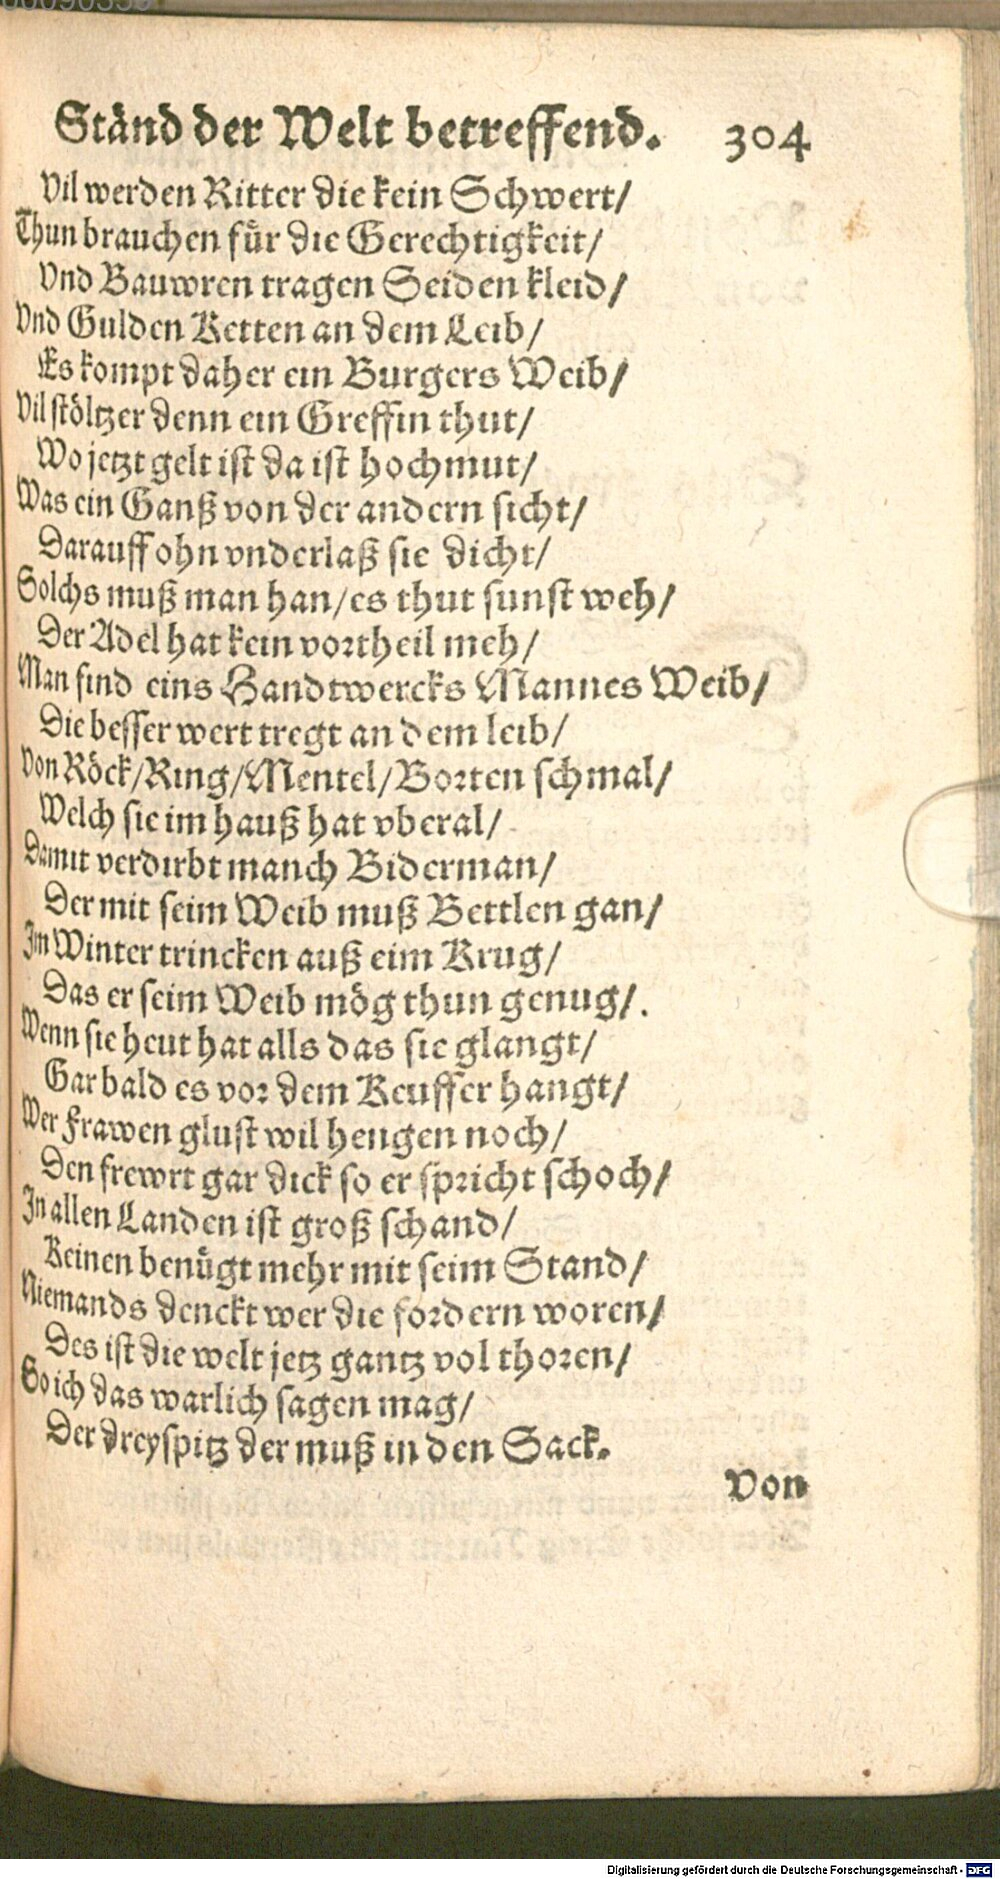 Ständ der Welt betreffend. 304
Vil werden Ritter die kein Schwert/
Thun brauchen für die Gerechtigkeit/
Vnd Bauwren tragen Seiden kleid/
Vnd Gulden Ketten an dem Leib/
Es kompt daher ein Burgers Weib/
Vil stöltzer denn ein Greffin thut/
Wo jetzt gelt ist da ist hochmut/
Was ein Ganß von der andern sicht/
Darauff ohn vnderlaß sie dicht/
Solchs muß man han/es thut sunst weh/
Der Adel hat kein vortheil meh/
Man find eins Handtwercks Mannes Weib/
Die besser wert tregt an dem leib/
Von Röck/Ring/Mentel/Borten schmal/
Welch sie im hauß hat vberal/
Damit verdirbt manch Biderman/
Der mit seim Weib muß Bettlen gan/
Im Winter trincken auß eim Krug/
Das er seim Weib mög thun genug/.
Wenn sie heut hat alls das sie glangt/
Gar bald es vor dem Keuffer hangt/
Wer Frawen glust wil hengen noch/
Den frewrt gar dick so er spricht schoch/
In allen Landen ist groß schand/
Keinen benügt mehr mit seim Stand/
Niemands denckt wer die fordern woren/
Des ist die welt jetz gantz vol thoren/
So ich das warlich sagen mag/
Der dreyspitz der muß in den Sack.
Von
Digitalisierung gefördert durch die Deutsche Forschungsgemeinschaft - DFG